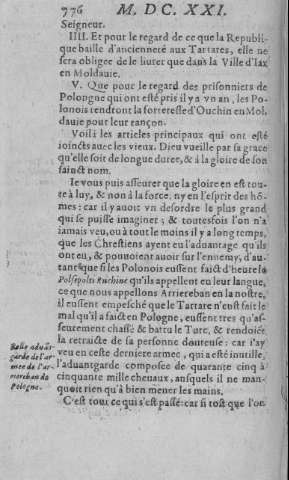 776 M. DC. XXI.
Seigneur.
IIII. Et pour le regard de ce que la Republi
que baille d'ancienneté aux Tartares, elle ne
sera obligee de le liurer que dans la Ville d'Iax
en Moldauie.
V. Que pour le regard des prisonniers de
Polongne qui ont esté pris il y a vn an, les Po-
lonois rendront la forteresse d'Ouchin en Mol
dauie pour leur rançon.
Voilà les articles principaux qui ont esté
ioincts auec les vieux. Dieu vueille par sa grace
qu'elle soit de longue duree, & à la gloire de son
sainct nom.
Ie vous puis asseurer que la gloire en est tou-
te à luy, & non à la force, ny en l'esprit des hô-
mes: car il y auoit vn desordre le plus grand
qui se puisse imaginer; & toutesfois l'on n'a
iamais veu, ou à tout le moins il y a long temps,
que les Chrestiens ayent eu l'aduantage qu'ils
ont eu, & pouuoient auoir sur l'ennemy, d'au-
tant que si les Polonois eussent faict d'heure le
Polsepolis Ruchine qu'ils appellent en leur langue,
ce que nous appellons Arriereban en la nostre,
il eussent empesché que le Tartare n'eust fait le
mal qu'il a faict en Pologne, eussent tres qu'as-
seurement chassé & batu le Turc, & rendoiẽt
la retraicte de sa personne douteuse: car i'ay
veu en ceste derniere armee, qui a esté inutille,
l'aduantgarde composee de quarante cinq à
cinquante mille cheuaux, ausquels il ne man-
quoit rien qu'à bien mener les mains.
C'est tout ce qui s'est passé: car si tost que l'on
Belle aduāt-
garde de l'ar-
mee de l'ar-
riereban de
Pologne.